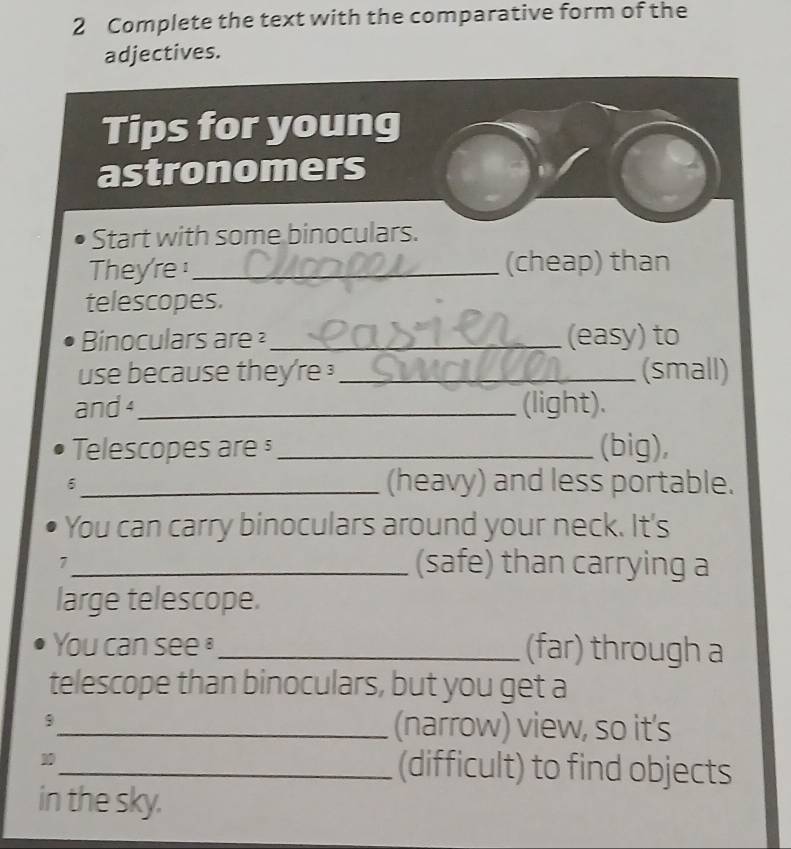 2 Complete the text with the comparative form of the
adjectives.
Tips for young
astronomers
• Start with some binoculars.
They're 1 Cheaper (cheap) than
telescopes.
• Binoculars are 2 easier (easy) to
use because they're 3 Smaller (small)
and 4 ____ (light).
• Telescopes are 5 ____ (big),
6 ____ (heavy) and less portable.
• You can carry binoculars around your neck. It's
7 ____ (safe) than carrying a
large telescope.
• You can see 8 ____ (far) through a
telescope than binoculars, but you get a
9 ____ (narrow) view, so it's
10 ____ (difficult) to find objects
in the sky.